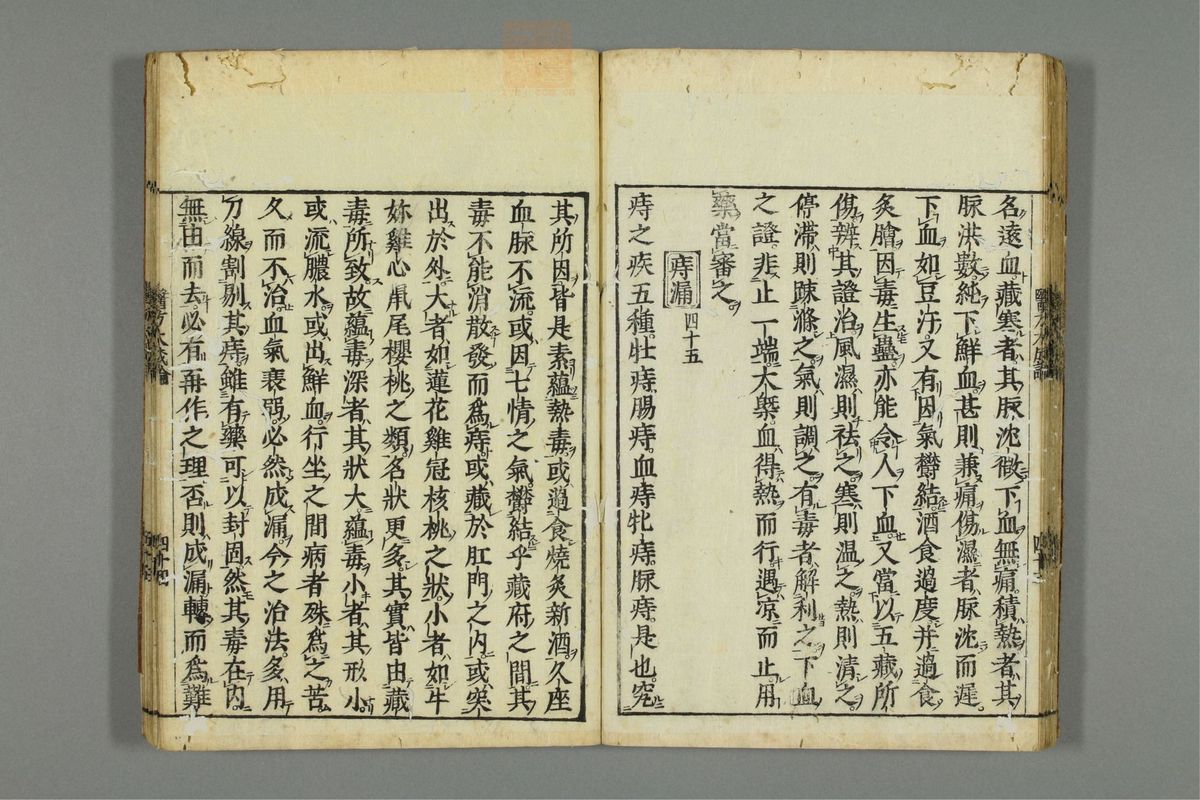 名遠血藏寒者其脉沈微下血無痛積熱者其
脉洪數純下鮮血甚則兼痛傷濕者脉沈而遲
下血如豆汁又有因氣欝結酒食過度并過食
炙膾因毒生蠱亦能令人下血又當以五藏所
傷辨其證治風濕則祛之寒則温之熱則清之
停滯則踈滌之氣則調之有毒者解利之下血
之證非止一端大槩血得熱而行遇凉而止用
藥當審之
痔漏 四十五
痔之疾五種牡痔腸痔血痔牝痔脉痔是也究
其所因皆是素蘊熱毒或過食燒炙新酒久座
血脉不流或因七情之氣欝結乎藏府之間其
毒不能消散發而爲痔或藏於肛門之内或突
出於外大者如蓮花雞冠核桃之狀小者如牛
妳雞心鼠尾櫻桃之類名狀更多其實皆由藏
毒所致故蘊毒深者其狀大蘊毒小者其形小
或流膿水或出鮮血行坐之間病者殊爲之苦
久而不治血氣衰弱必然成漏今之治法多用
刀線割剔其痔雖有藥可以封固然其毒在内
無由而去必有再作之理否則成漏轉而爲難